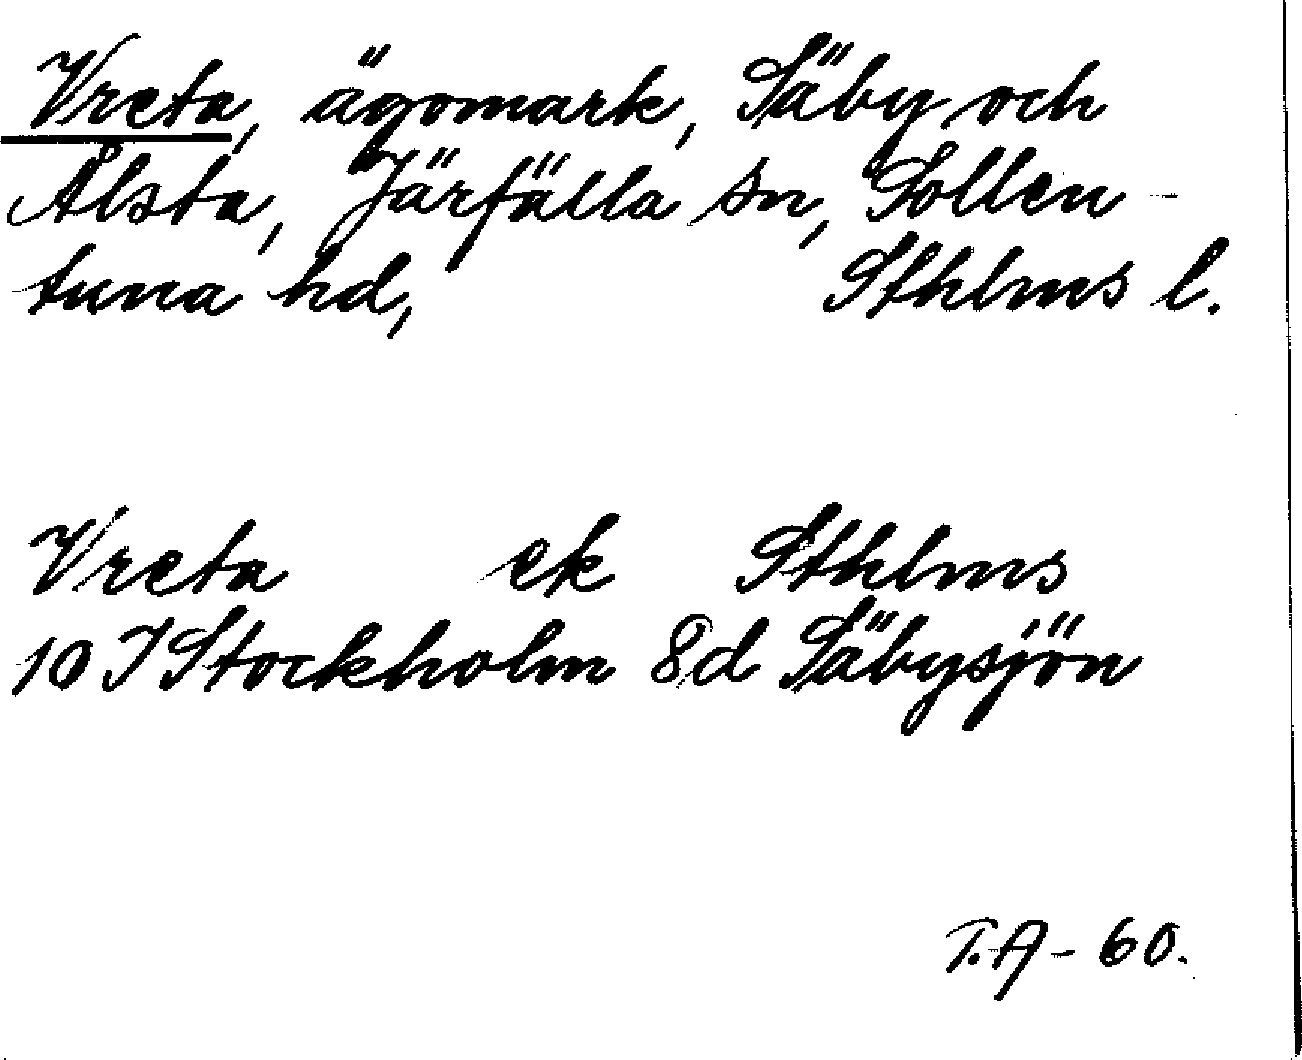 Vreta, ägomark, Säby och
Ålsta, Järfälla sn, Sollen-
tuna hd, Sthlms l.
Vreta ek Sthlms
10 I Stockholm 8d Säbysjön
T.A - 60.